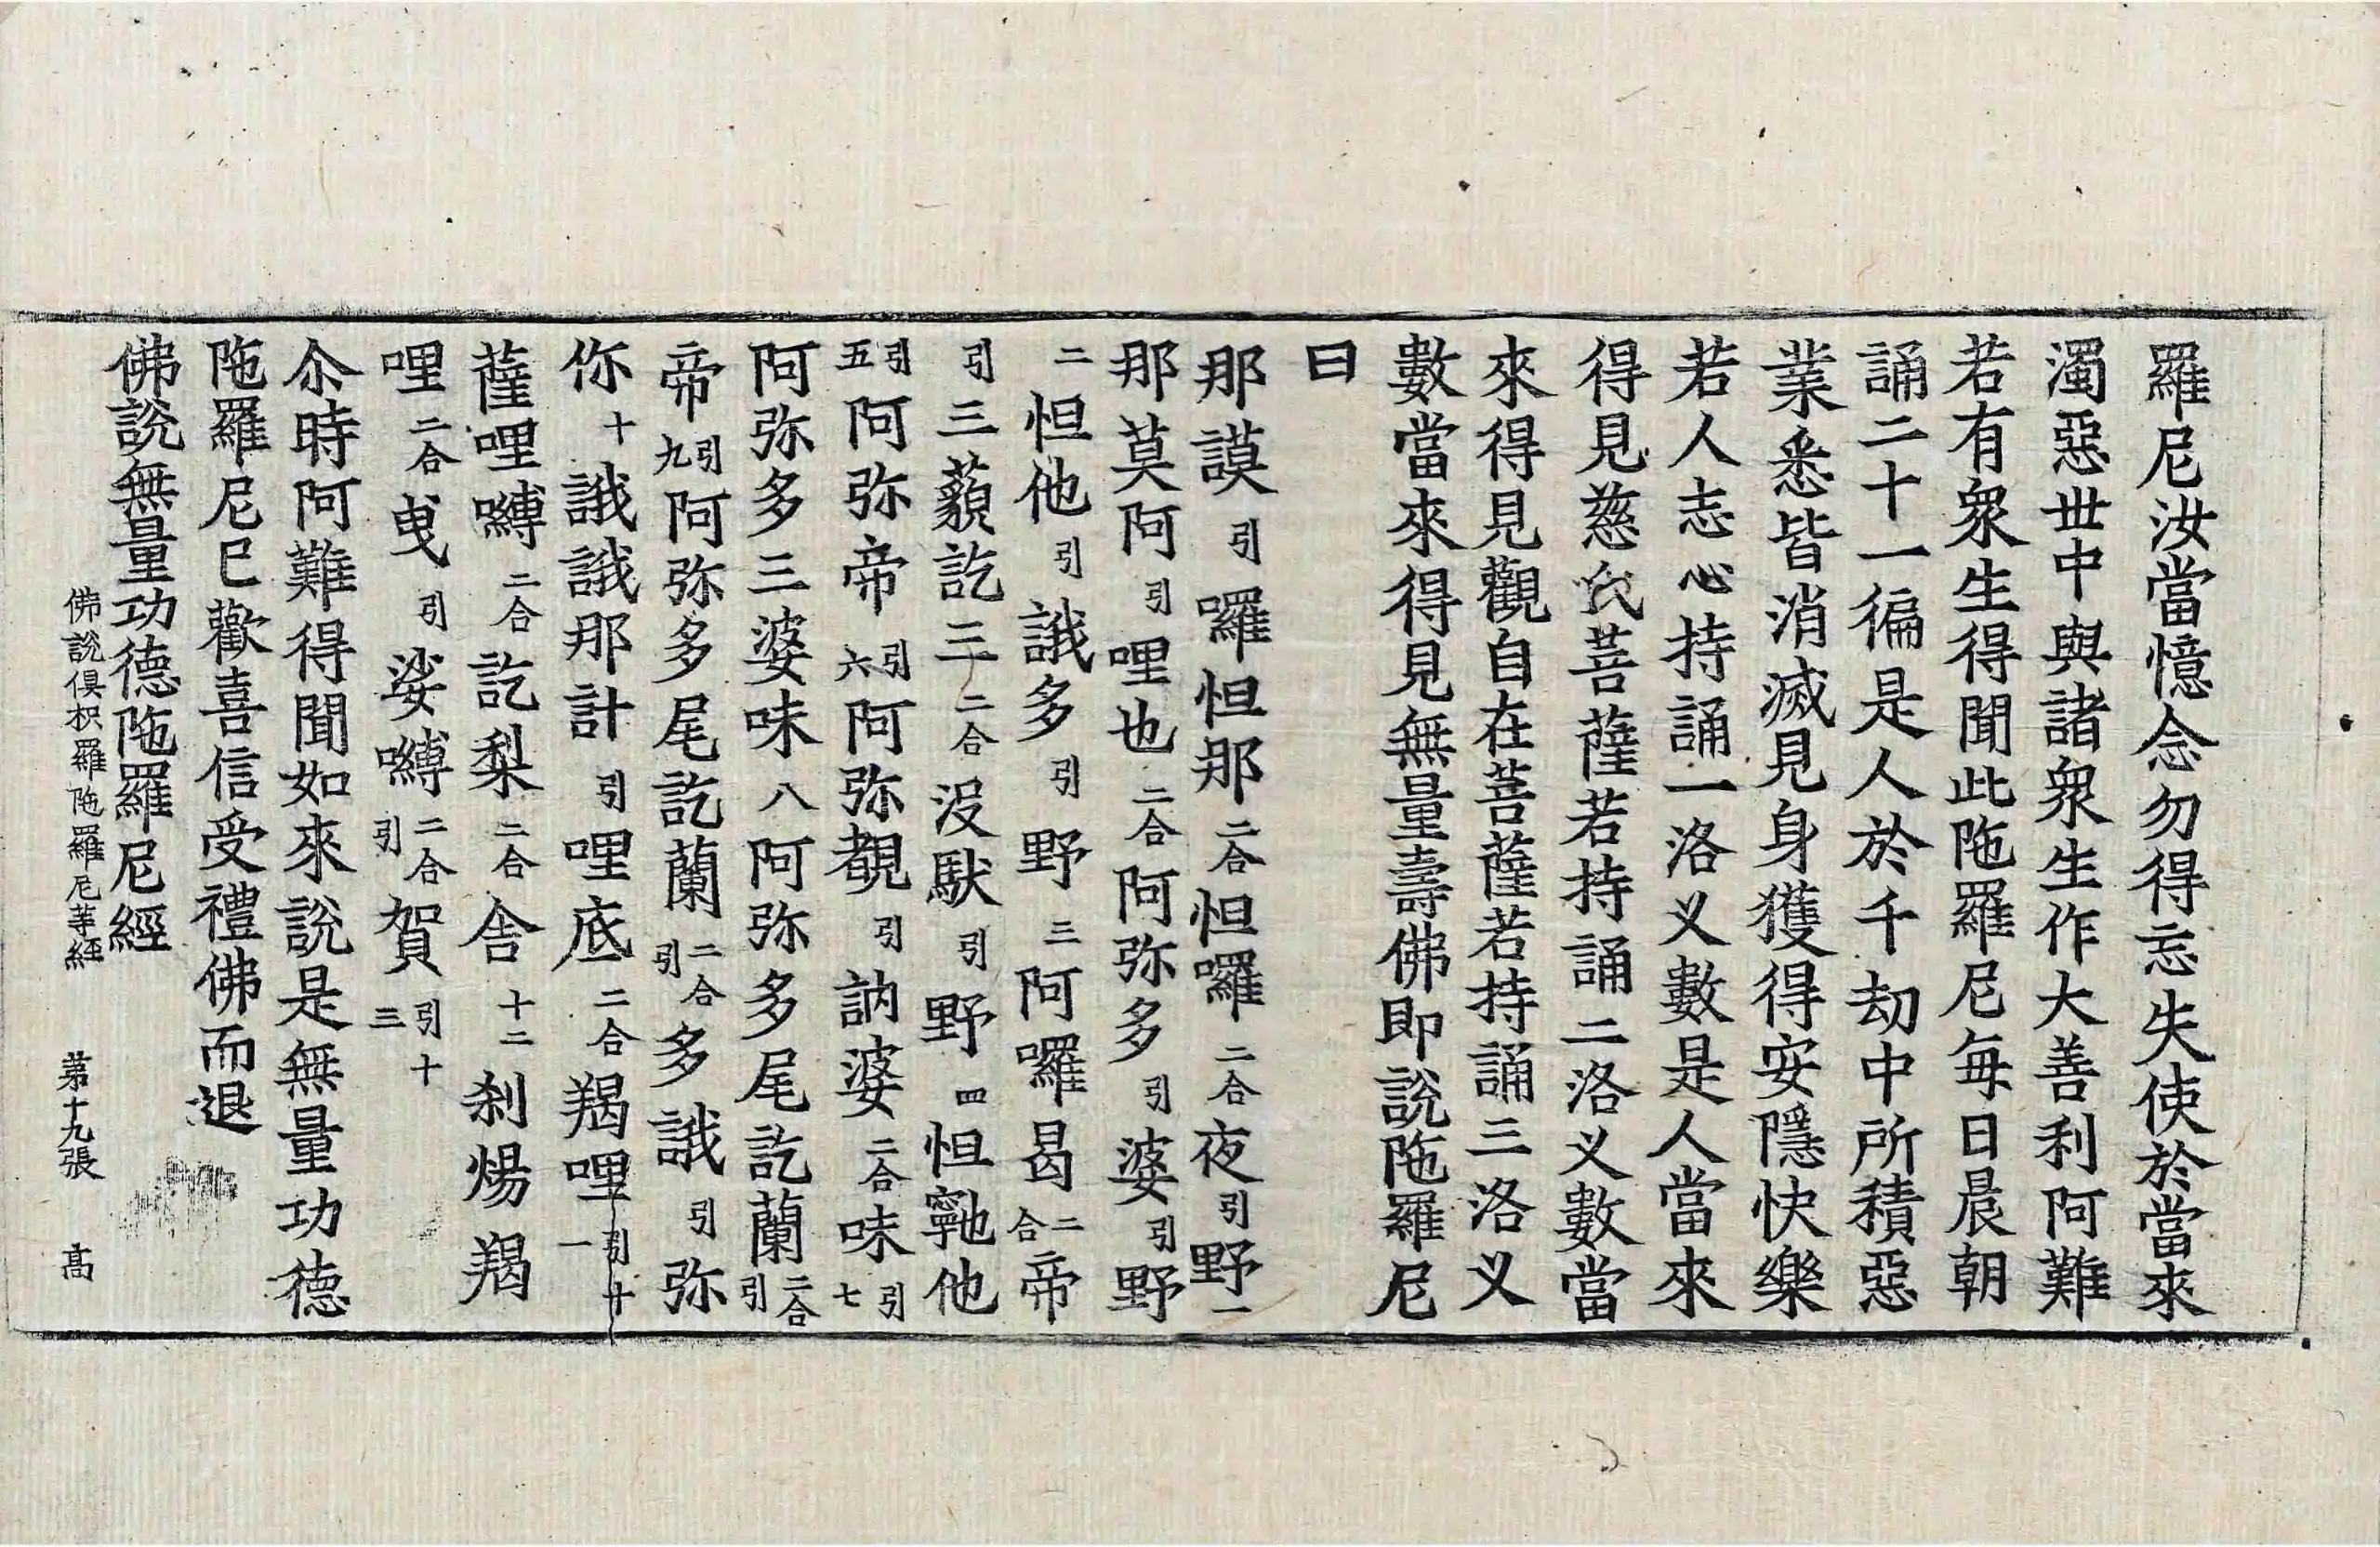 羅尼汝當憶念勿得忘失使於當來
濁惡丗中與諸衆生作大善利阿難
若有衆生得聞此陁羅尼每日晨朝
誦二十一徧是人於千劫中所積惡
業悉皆消滅見身獲得安隱快樂
若人志心持誦一洛义數是人當來
得見慈氏菩薩若持誦二洛义數當
來得見觀自在菩薩若持誦三洛义
數當來得見無量壽佛即說陁羅尼
曰
那謨引囉怛那二合怛囉二合夜引野一
那莫阿引哩也二合阿弥多引婆引野
二怛他引誐多引野三阿囉曷二合帝
引三藐訖三二合沒馱引野四怛寧也他
引五阿弥帝引六阿弥覩引訥婆二合味引七
阿弥多三婆味八阿弥多尾訖蘭二合引
帝引九阿弥多尾訖蘭二合引多誐引弥
你十誐誐那計引哩底二合羯哩引十一
薩哩嚩二合訖梨二合舍十二刹煬羯
哩二合曳引娑嚩二合引賀引十三
尒時阿難得聞如來說是無量功德
陁羅尼巳歡喜信受禮佛而退
佛說無量功德陁羅尼經
佛說俱枳羅陁羅尼等經 苐十九張 髙